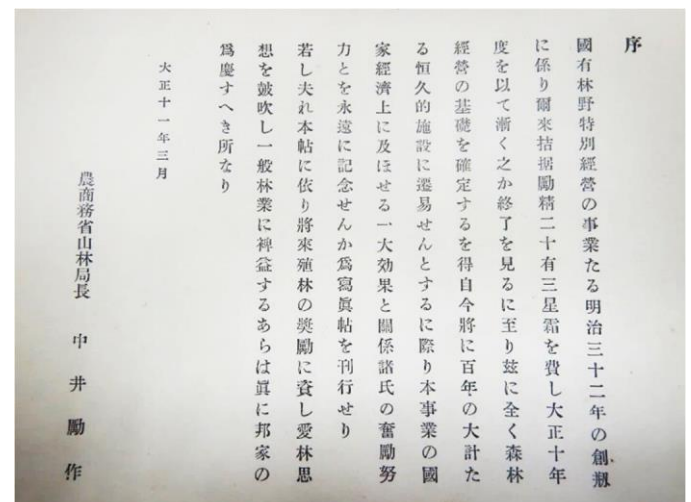 序
國有林野特別經營の事業たる明治三十二年の創剏
に係り爾來拮据勵精二十有三星霜を費し大正十年
度を以て漸く之か終了を見るに至り玆に全く森林
經營の基礎を確定するを得自今將に百年の大計た
る恒久的施設に遷易せんとするに際り本事業の國
家經濟上に及ほせる一大効果と關係諸氏の奮勵努
力とを永遠に記念せんか爲寫眞帖を刊行せり
若し夫れ本帖に依り將來殖林の奬勵に資し愛林思
想を皷吹し一般林業に裨益するあらは眞に邦家の
爲慶すへき所なり
大正十一年三月
農商務省山林局長 中井勵作